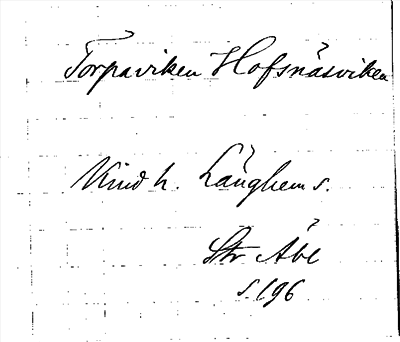 Torpaviken Hofsnäsviken
Kind h. Länghem s.
Str Åbl
s. 196